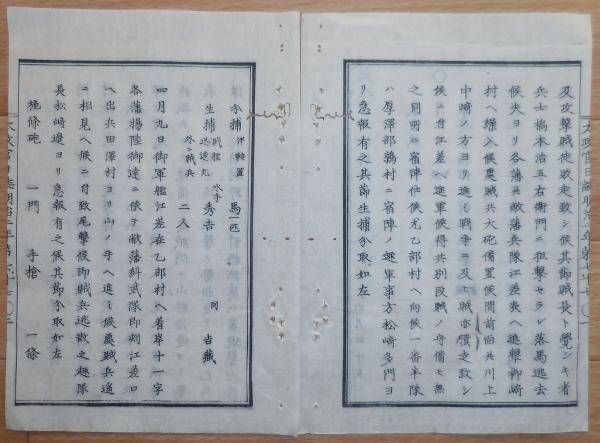 及攻撃賊徒敗走致シ候其節賊長ト覺シキ者
兵士橋本治五右衞門ニ狙撃セラレ落馬逃去
候夫ヨリ各藩共敵藩兵隊江差表ヘ進撃柳崎
村ヘ繰入候處賊共大砲備置候間前面共川上
中崎ノ方ヨリ進ミ戰爭ニ及ヒ賊亦潰走致シ
候ニ付江差ヘ進軍候得共別段賊ノ守備モ無
之同所ニ宿陣仕候尤乙部村ヘ向候一番半隊
ハ厚澤部鶉村ニ宿陣ノ處軍事方松崎多門ヨ
リ急報有之其節生捕分取如左
分捕 洋鞍置 馬一匹
生捕 賊艦迅速丸 水手 秀吉 同 吉藏
外ニ賊兵 二人
四月九日御軍艦江差在乙部村ヘ着岸十一字
各藩揚陸御達ニ依テ敝藩糾武隊即刻江差口
ヘ出兵田澤村ヨリ山ノ手ヘ進ミ候處賊兵遥
ニ相見ヘ候ニ付致尾撃候即賊兵迯散之趣隊
長松崎邊ヨリ急報有之候其節分取如左
施條砲 一門 手槍 一條